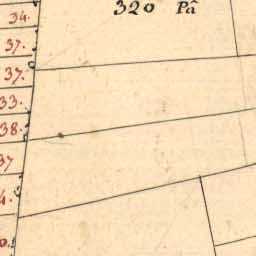 320 Pâ
34.
37.
37.
33.
38.
37